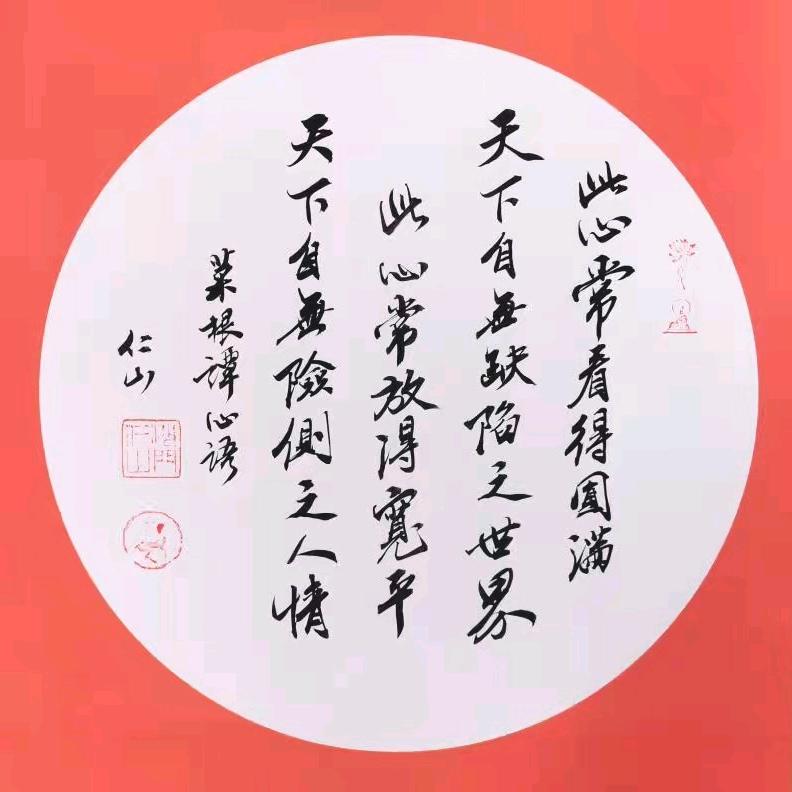 此心常看得圓滿
天下自無缺陷之世界
此心常放得寬平
天下自無險側之人情
菜根譚心语
仁山